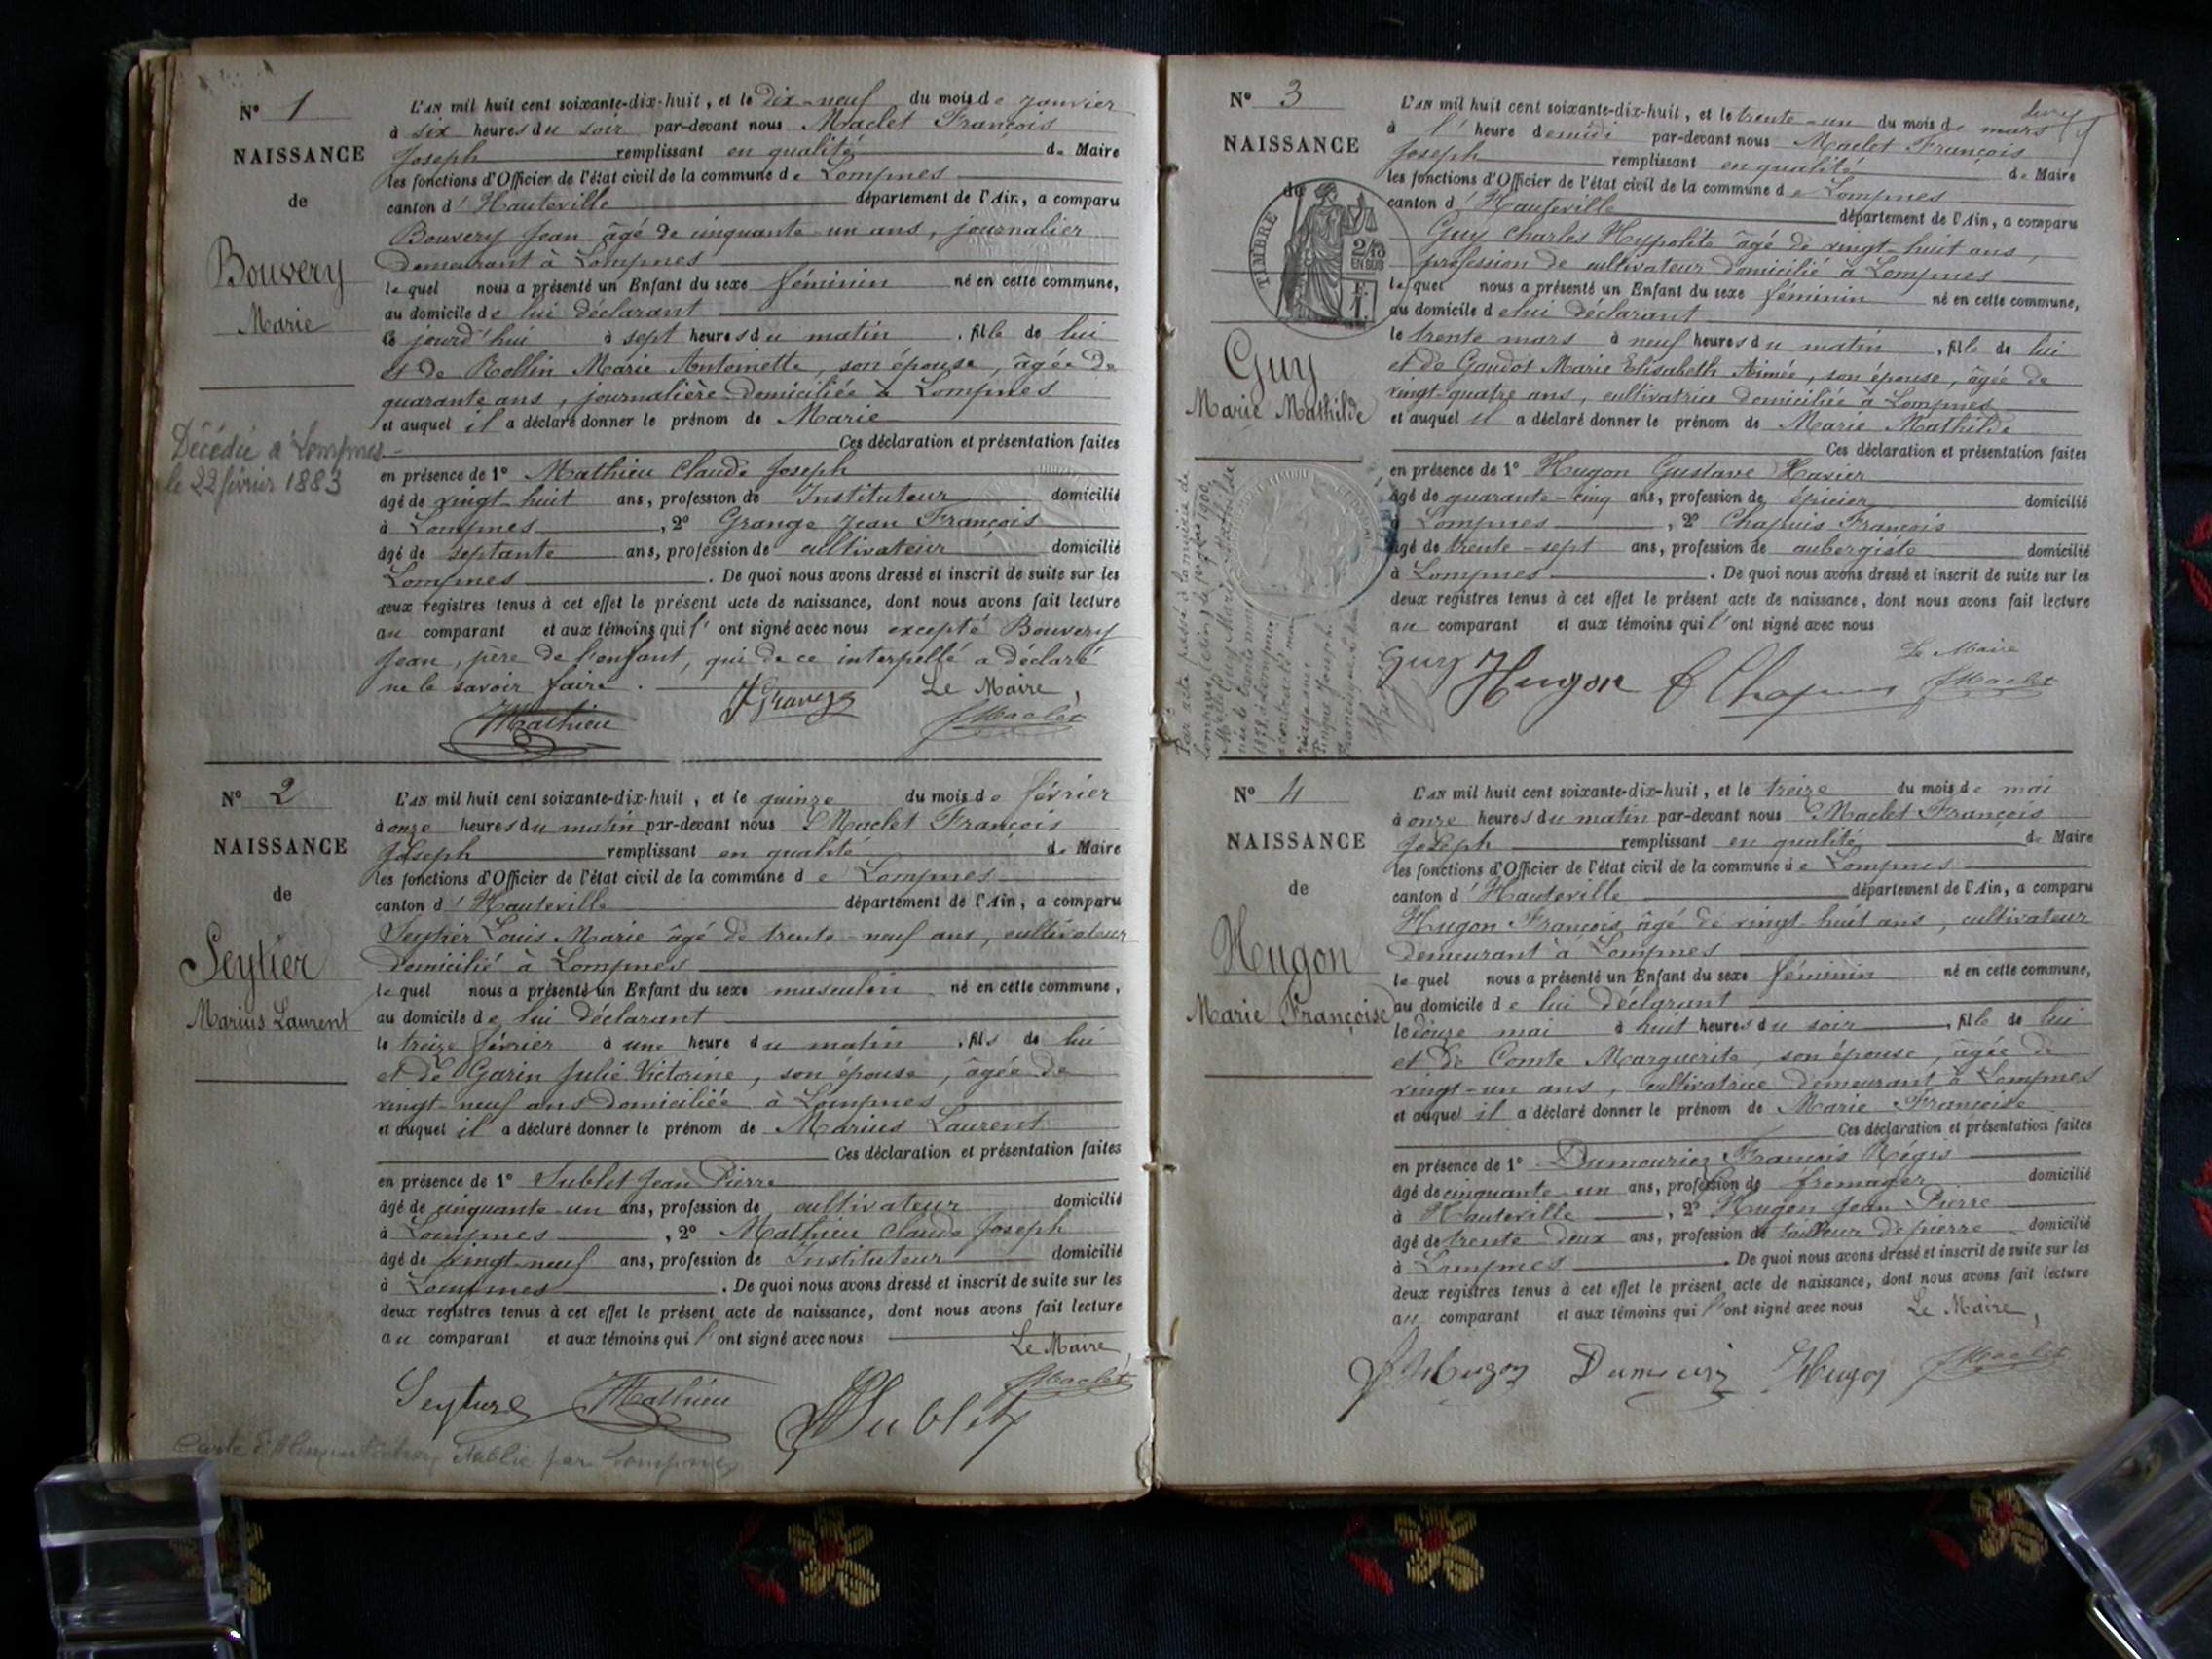 N° 1
NAISSANCE
de
Bouvery
Marie
Décédée à Lompnes
le 22 février 1883
L'AN mil huit cent soixante-dix-huit, et le dix-neuf du mois de janvier
à six heures du soir par-devant nous Maclet François
Joseph remplissant en qualité de Maire
les fonctions d'Officier de l'état civil de la commune de Lompnes
canton d'Hauteville département de l'Ain, a comparu
Bouvery Jean âgé de cinquante-un ans, journalier
demeurant à Lompnes
lequel nous a présenté un Enfant du sexe féminin né en cette commune,
au domicile de lui déclarant
ce jourd'hui à sept heures du matin, fille de lui
et de Rollin Marie Antoinette, son épouse, âgée de
quarante ans, journalière domiciliée à Lompnes
et auquel il a déclaré donner le prénom de Marie
Ces déclaration et présentation faites
en présence de 1° Mathieu Claude Joseph
âgé de vingt-huit ans, profession de Instituteur domicilié
à Lompnes, 2° Grange Jean François
âgé de septante ans, profession de cultivateur domicilié
Lompnes. De quoi nous avons dressé et inscrit de suite sur les
deux registres tenus à cet effet le présent acte de naissance, dont nous avons fait lecture
au comparant et aux témoins qui l'ont signé avec nous excepté Bouvery
Jean, père de l'enfant, qui de ce interpellé a déclaré
ne le savoir faire.
Le Maire,
Mathieu JGrange JMaclet
N° 2
NAISSANCE
de
Seytier
Marius Laurent
L'AN mil huit cent soixante-dix-huit, et le quinze du mois de février
à onze heures du matin par-devant nous Maclet François
Joseph remplissant en qualité de Maire
les fonctions d'Officier de l'état civil de la commune de Lompnes
canton d'Hauteville département de l'Ain, a comparu
Seytier Louis Marie âgé de trente-neuf ans, cultivateur
domicilié à Lompnes
lequel nous a présenté un Enfant du sexe masculin né en cette commune,
au domicile de lui déclarant
le treize février à une heure du matin, fils de lui
et de Garin Julie Victorine, son épouse, âgée de
vingt-neuf ans domiciliée à Lompnes
et auquel il a déclaré donner le prénom de Marius Laurent
Ces déclaration et présentation faites
en présence de 1° Sublet Jean Pierre
âgé de cinquante-un ans, profession de cultivateur domicilié
à Lompnes, 2° Mathieu Claude Joseph
âgé de vingt-neuf ans, profession de Instituteur domicilié
à Lompnes. De quoi nous avons dressé et inscrit de suite sur les
deux registres tenus à cet effet le présent acte de naissance, dont nous avons fait lecture
au comparant et aux témoins qui l'ont signé avec nous
Le Maire,
Mathieu Sublet JMaclet
Carte d'Alimentation établie par Lompnes
N° 3
NAISSANCE
de
TIMBRE
2/10
EN SUS
Guy
Marie Mathilde
L'AN mil huit cent soixante-dix-huit, et le trente-un du mois de mars
à l'heure de midi par-devant nous Maclet François
Joseph remplissant en qualité de Maire
les fonctions d'Officier de l'état civil de la commune de Lompnes
canton d'Hauteville département de l'Ain, a comparu
Guy Charles Hypolite âgé de vingt-huit ans,
profession de cultivateur domicilié à Lompnes
lequel nous a présenté un Enfant du sexe féminin né en cette commune,
au domicile de lui déclarant
le trente mars à neuf heures du matin, fille de lui
et de Gaudot Marie Elisabeth Aimée, son épouse, âgée de
vingt-quatre ans, cultivatrice domiciliée à Lompnes
et auquel il a déclaré donner le prénom de Marie Mathilde
Ces déclaration et présentation faites
en présence de 1° Hugon Gustave Xavier
âgé de quarante-cinq ans, profession de épicier domicilié
à Lompnes, 2° Chapuis François
âgé de trente-sept ans, profession de aubergiste domicilié
à Lompnes. De quoi nous avons dressé et inscrit de suite sur les
deux registres tenus à cet effet le présent acte de naissance, dont nous avons fait lecture
au comparant et aux témoins qui l'ont signé avec nous
Le Maire
Guy Hugon JMaclet
N° 4
NAISSANCE
de
Hugon
Marie Françoise
L'AN mil huit cent soixante-dix-huit, et le treize du mois de mai
à onze heures du matin par-devant nous Maclet François
Joseph remplissant en qualité de Maire
les fonctions d'Officier de l'état civil de la commune de Lompnes
canton d'Hauteville département de l'Ain, a comparu
Hugon François âgé de vingt-huit ans, cultivateur
demeurant à Lompnes
lequel nous a présenté un Enfant du sexe féminin né en cette commune,
au domicile de lui déclarant
le douze mai à huit heures du soir, fille de lui
et de Comte Marguerite, son épouse, âgée de
vingt-un ans, cultivatrice demeurant à Lompnes
et auquel il a déclaré donner le prénom de Marie Françoise
Ces déclaration et présentation faites
en présence de 1° Dumouriez François Régis
âgé de cinquante-un ans, profession de fromager domicilié
à Hauteville, 2° Hugon Jean Pierre
âgé de trente-deux ans, profession de tailleur de pierre domicilié
à Lompnes. De quoi nous avons dressé et inscrit de suite sur les
deux registres tenus à cet effet le présent acte de naissance, dont nous avons fait lecture
au comparant et aux témoins qui l'ont signé avec nous Le Maire,
Hugon Hugon JMaclet